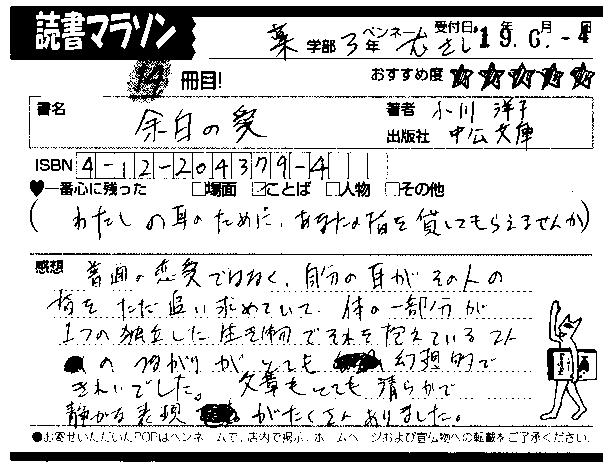 読書マラソン
薬 学部 3 年 ペンネーム むさし 受付日 '19年 6月 -4
14 冊目!
おすすめ度 ★★★★★
書名 余白の愛
著者 小川 洋子
出版社 中公文庫
ISBN 4-12-204379-4
♥一番心に残った □場面 ☑ことば □人物 □その他
( わたしの耳のために、あなたの指を貸してもらえませんか)
感想 普通の恋愛ではなく、自分の耳がその人の
指をただ追い求めていて、体の一部分が
1つの独立した生き物でそれを抱えている2人
のつながりがとても幻想的で
きれいでした。文章もとても清らかで
静かな表現がたくさんありました。
●お寄せいただいたPOPはペンネームで、店内で掲示、ホームページおよび宣伝物への転載をご了承ください。